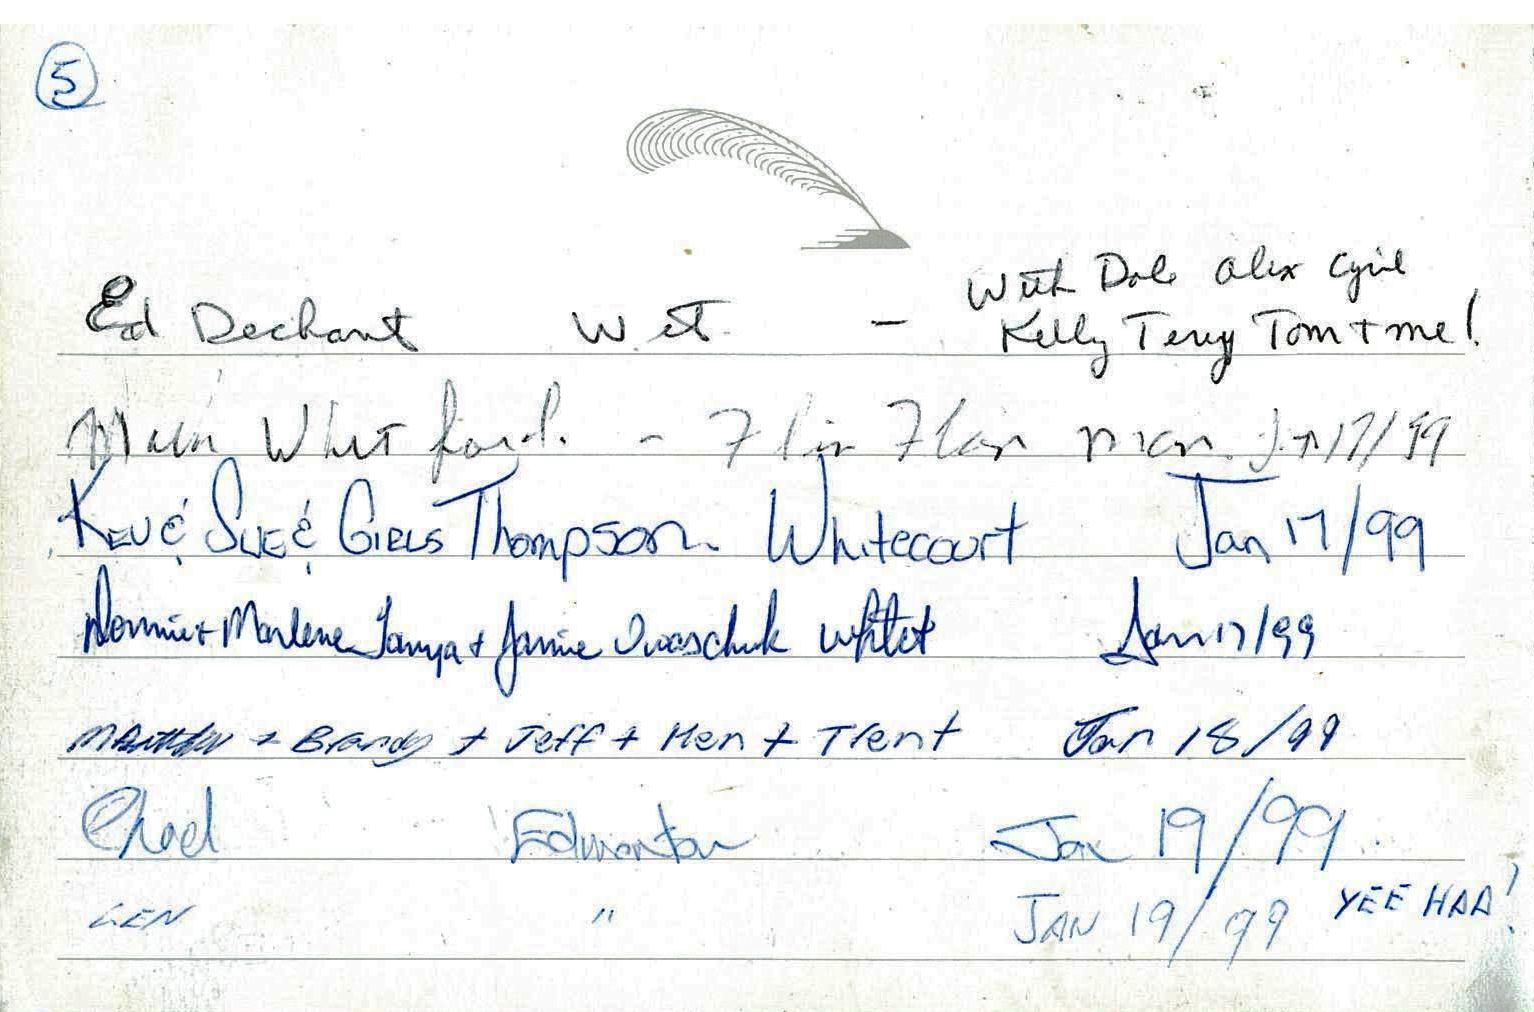 5
With Dale Alex Cyril
Ed Dechant W ct. - Kelly Terry Tom + me!
Whitford. - Flin Flon Man. Jan 17/99
KEV & SUE & GIRLS Thompson. Whitecourt Jan 17/99
Donnie + Marlene Tanya + Jamie Owaschuk Whtct Jan 17/99
+ Brandy + Jeff + Ken + Trent Jan 18/99
Chad Edmonton Jan 19/99
LEN " JAN 19/99 YEE HAA!